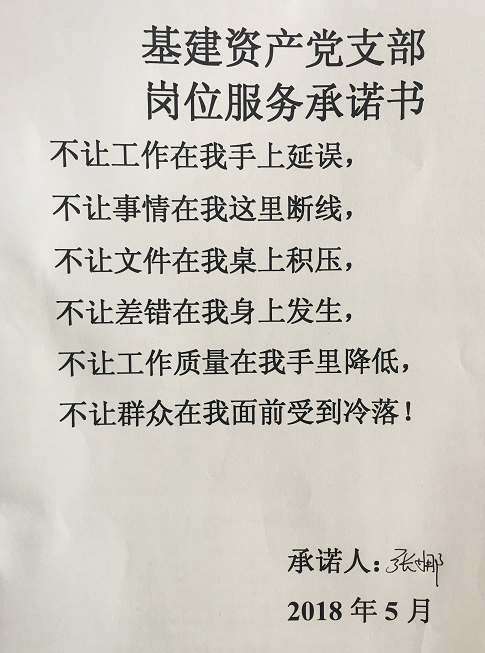 基建资产党支部
岗位服务承诺书
不让工作在我手上延误，
不让事情在我这里断线，
不让文件在我桌上积压，
不让差错在我身上发生，
不让工作质量在我手里降低，
不让群众在我面前受到冷落！
承诺人：张娜
2018 年 5 月